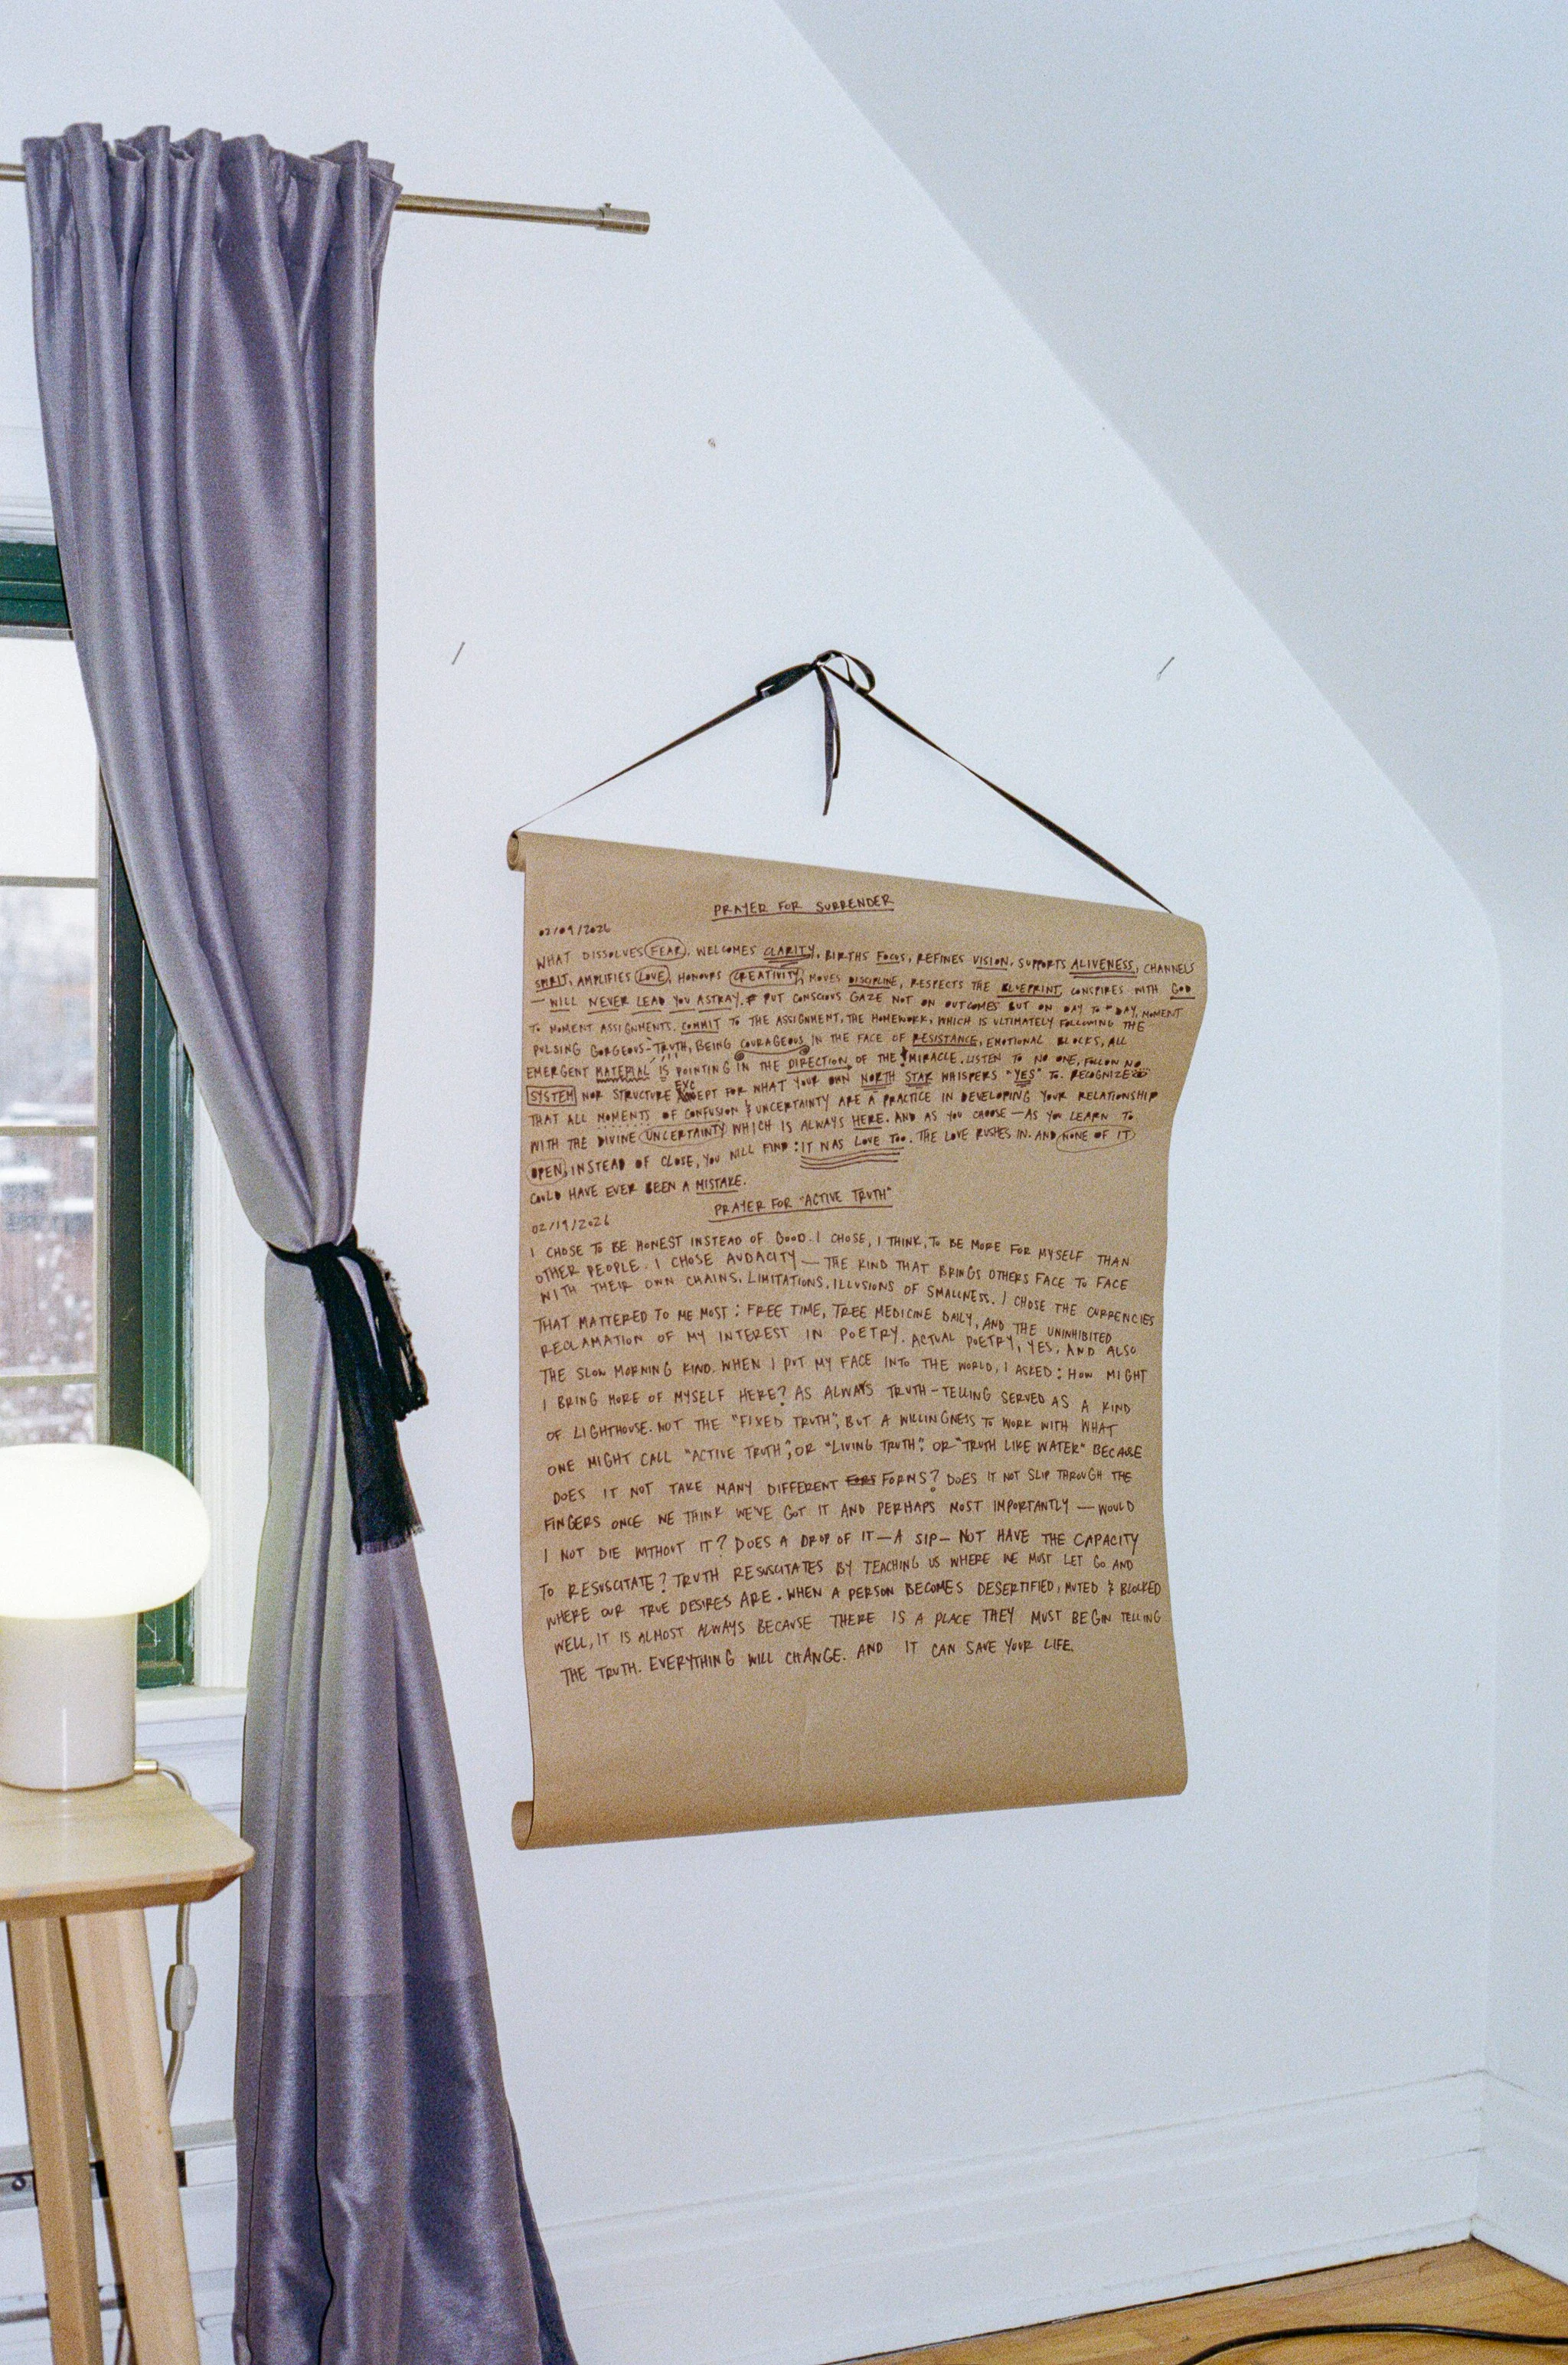 PRAYER FOR SURRENDER
02/09/2026
WHAT DISSOLVES FEAR, WELCOMES CLARITY, BIRTHS FOCUS, REFINES VISION, SUPPORTS ALIVENESS, CHANNELS
SPIRIT, AMPLIFIES LOVE, HONOURS CREATIVITY, MOVES DISCIPLINE, RESPECTS THE BLUEPRINT, CONSPIRES WITH GOD
— WILL NEVER LEAD YOU ASTRAY. PUT CONSCIOUS GAZE NOT ON OUTCOMES BUT ON DAY TO DAY, MOMENT
TO MOMENT ASSIGNMENTS. COMMIT TO THE ASSIGNMENT, THE HOMEWORK, WHICH IS ULTIMATELY FOLLOWING THE
PULSING GORGEOUS-TRUTH, BEING COURAGEOUS IN THE FACE OF RESISTANCE, EMOTIONAL BLOCKS, ALL
EMERGENT MATERIAL IS POINTING IN THE DIRECTION OF THE MIRACLE. LISTEN TO NO ONE, FOLLOW NO
SYSTEM NOR STRUCTURE EXCEPT FOR WHAT YOUR OWN NORTH STAR WHISPERS "YES" TO. RECOGNIZE
THAT ALL MOMENTS OF CONFUSION & UNCERTAINTY ARE A PRACTICE IN DEVELOPING YOUR RELATIONSHIP
WITH THE DIVINE UNCERTAINTY WHICH IS ALWAYS HERE. AND AS YOU CHOOSE — AS YOU LEARN TO
OPEN, INSTEAD OF CLOSE, YOU WILL FIND: IT WAS LOVE TOO. THE LOVE RUSHES IN. AND NONE OF IT
COULD HAVE EVER BEEN A MISTAKE.
PRAYER FOR "ACTIVE TRUTH"
02/19/2026
I CHOSE TO BE HONEST INSTEAD OF GOOD. I CHOSE, I THINK, TO BE MORE FOR MYSELF THAN
OTHER PEOPLE. I CHOSE AUDACITY — THE KIND THAT BRINGS OTHERS FACE TO FACE
WITH THEIR OWN CHAINS, LIMITATIONS, ILLUSIONS OF SMALLNESS. I CHOSE THE CURRENCIES
THAT MATTERED TO ME MOST: FREE TIME, TREE MEDICINE DAILY, AND THE UNINHIBITED
RECLAMATION OF MY INTEREST IN POETRY. ACTUAL POETRY, YES, AND ALSO
THE SLOW MORNING KIND. WHEN I PUT MY FACE INTO THE WORLD, I ASKED: HOW MIGHT
I BRING MORE OF MYSELF HERE? AS ALWAYS TRUTH-TELLING SERVED AS A KIND
OF LIGHTHOUSE. NOT THE "FIXED TRUTH", BUT A WILLINGNESS TO WORK WITH WHAT
ONE MIGHT CALL "ACTIVE TRUTH", OR "LIVING TRUTH", OR "TRUTH LIKE WATER" BECAUSE
DOES IT NOT TAKE MANY DIFFERENT FORMS? DOES IT NOT SLIP THROUGH THE
FINGERS ONCE WE THINK WE'VE GOT IT AND PERHAPS MOST IMPORTANTLY — WOULD
I NOT DIE WITHOUT IT? DOES A DROP OF IT — A SIP — NOT HAVE THE CAPACITY
TO RESUSCITATE? TRUTH RESUSCITATES BY TEACHING US WHERE WE MUST LET GO AND
WHERE OUR TRUE DESIRES ARE. WHEN A PERSON BECOMES DESERTIFIED, MUTED & BLOCKED
WELL, IT IS ALMOST ALWAYS BECAUSE THERE IS A PLACE THEY MUST BEGIN TELLING
THE TRUTH. EVERYTHING WILL CHANGE. AND IT CAN SAVE YOUR LIFE.